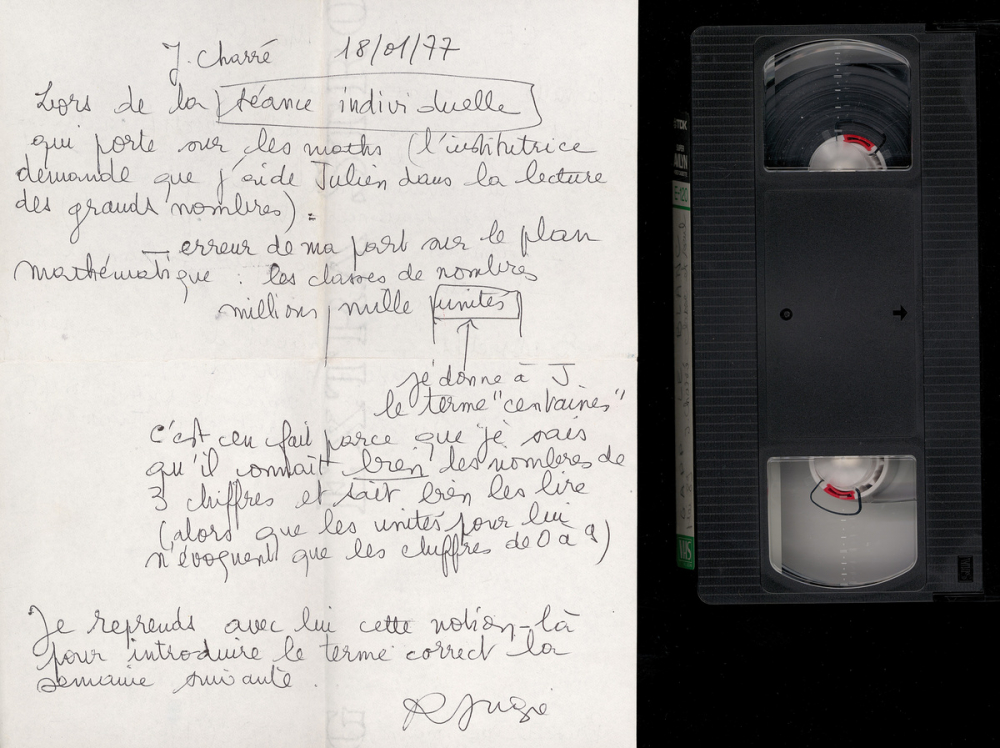 J. Charré 18/01/77
Lors de la séance individuelle
qui porte sur les maths (l'institutrice
demande que j'aide Julien dans la lecture
des grands nombres) :
_ erreur de ma part sur le plan
mathématique : les classes de nombres
millions mille unités
je donne à J
le terme "centaines"
c'est en fait parce que je sais
qu'il connaît bien les nombres de
3 chiffres et sait bien les lire
(alors que les unités pour lui
n'évoquent que les chiffres de 0 à 9)
Je reprends avec lui cette notion-là
pour introduire le terme correct la
semaine suivante.
TDK
E-120
VHS